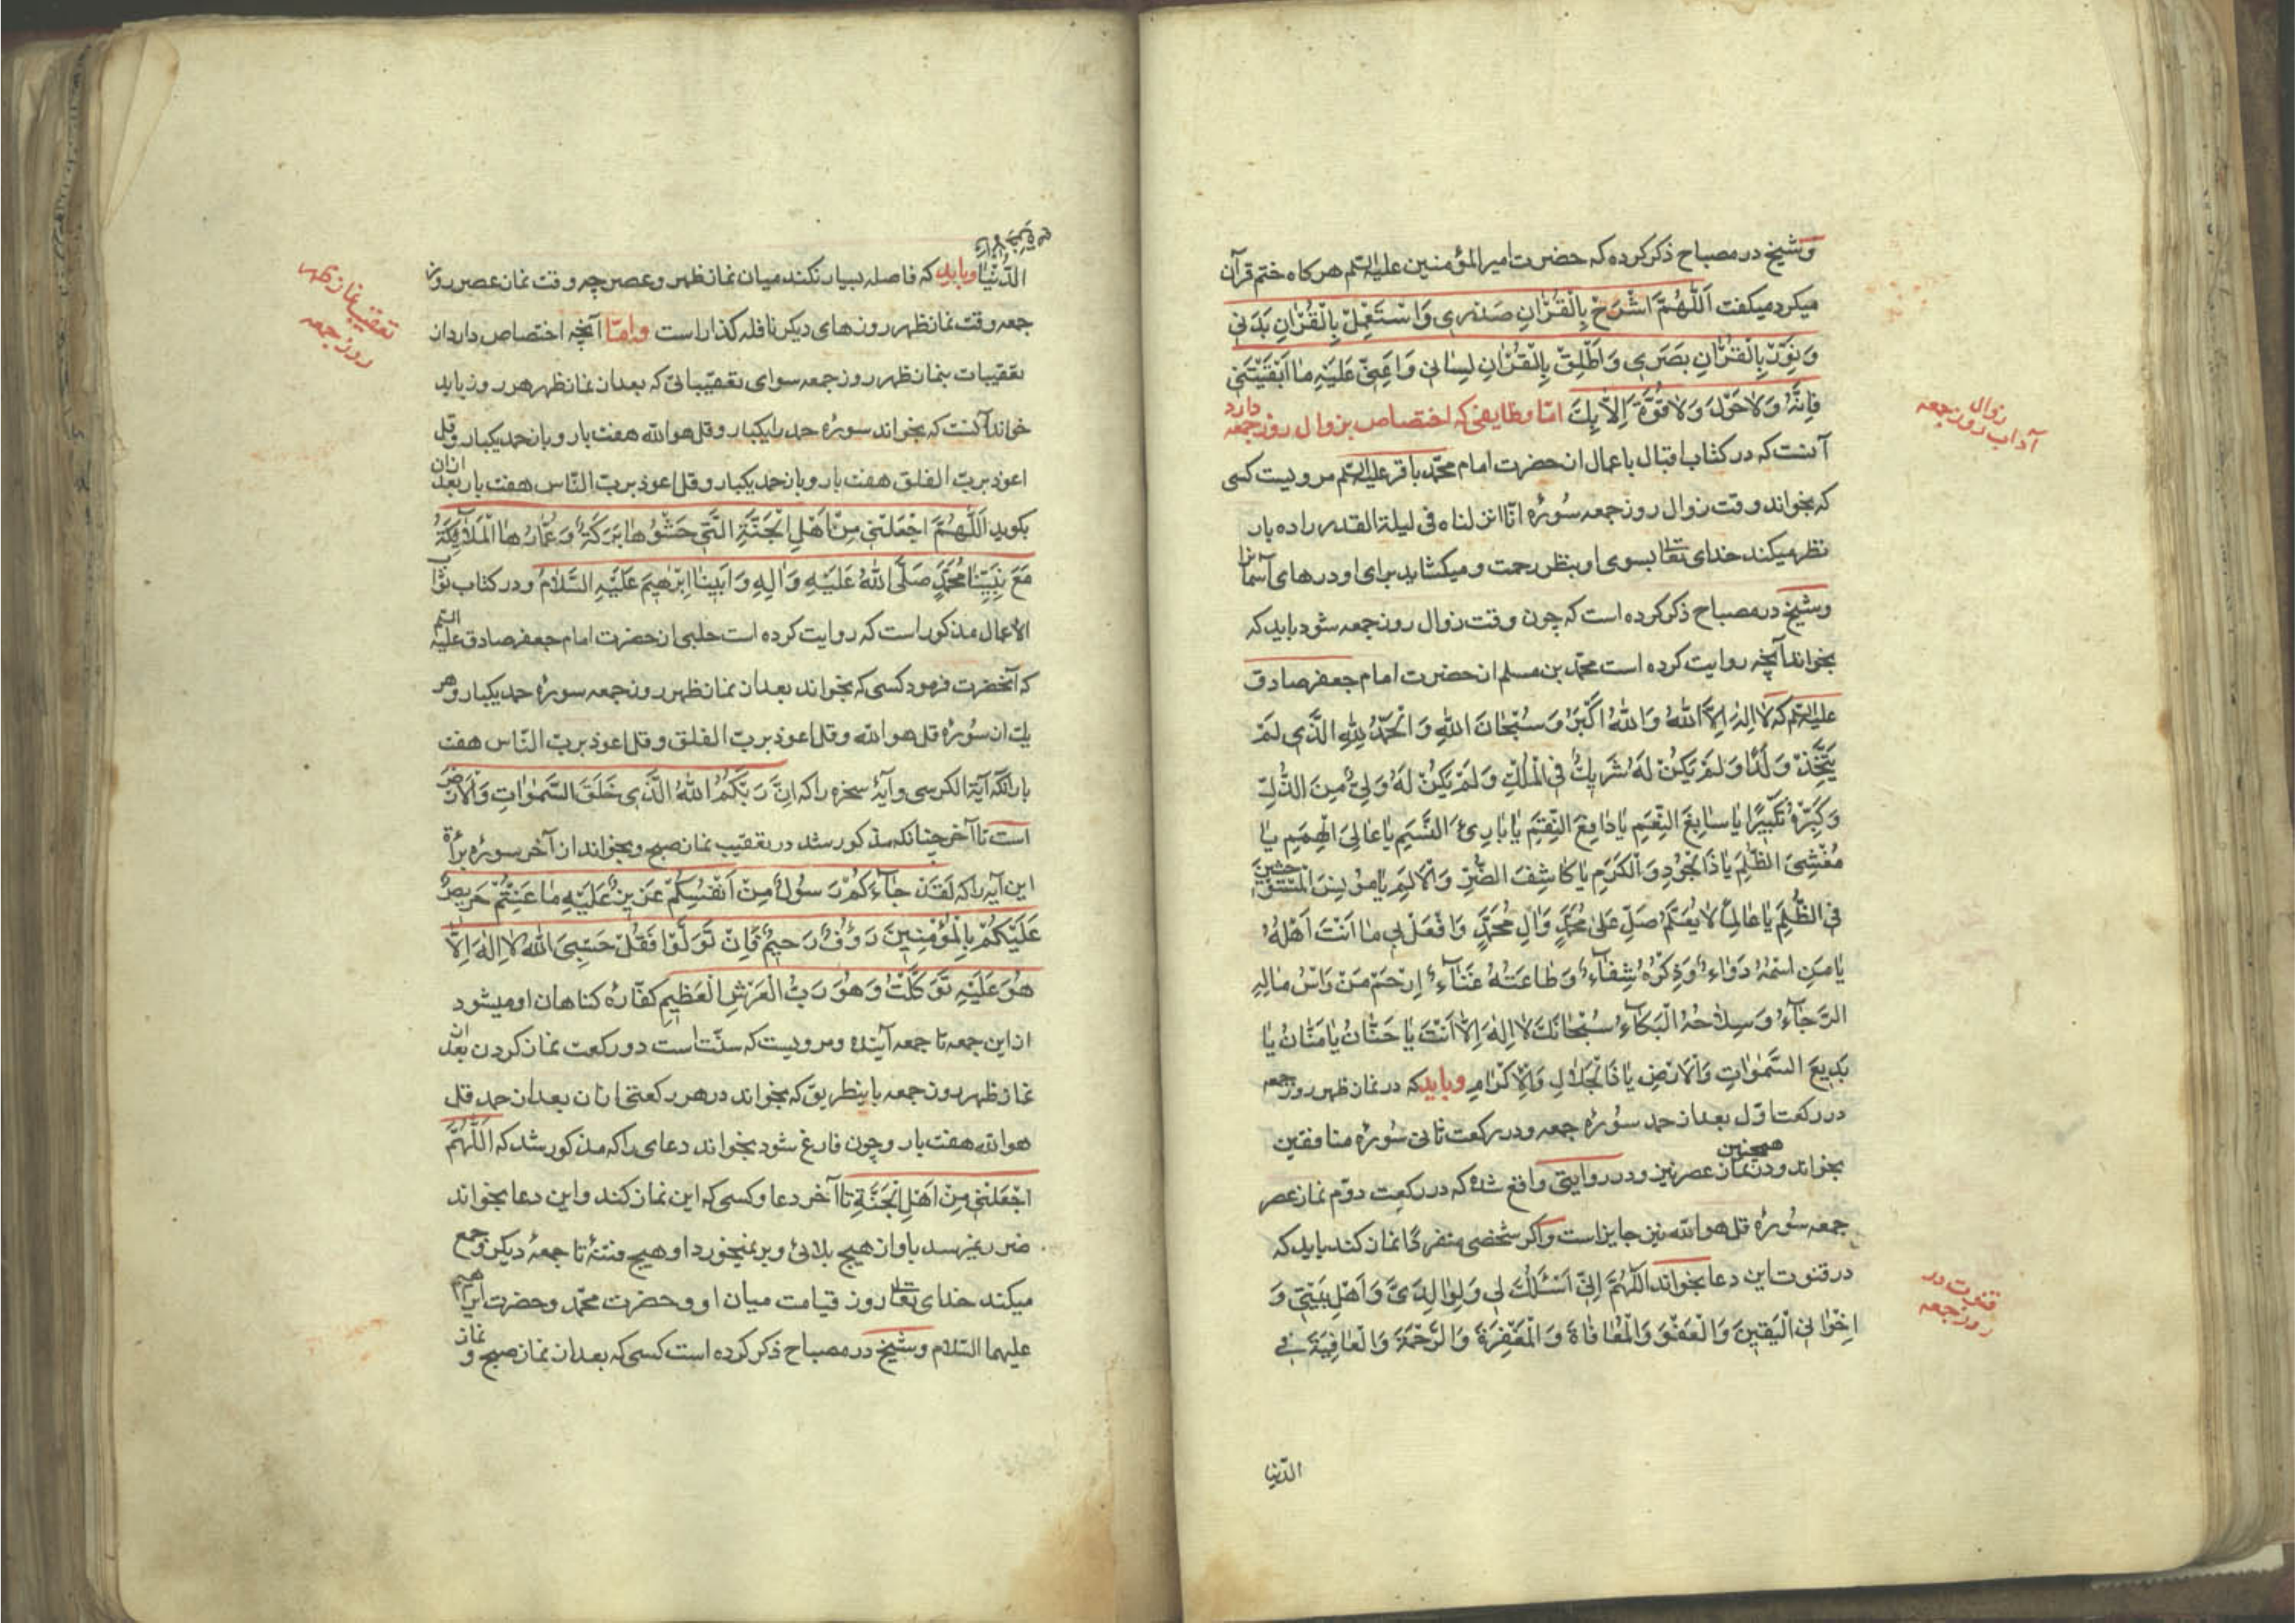 وشیخ در مصباح ذکر کرده که حضرت امیر المؤمنین علیه السلم هرکاه ختم قرآن
میکرد میکفت اَللّٰهُمَّ اشْرَحْ بِالْقُرْاٰنِ صَدْرِی وَاسْتَعْمِلْ بِالْقُرْاٰنِ بَدَنِی
وَنَوِّرْ بِالْقُرْاٰنِ بَصَرِی وَاَطْلِقْ بِالْقُرْاٰنِ لِسٰانِی وَاَعِنِّی عَلَیْهِ مٰا اَبْقَیْتَنِی
فَاِنَّهُ وَلاٰحَوْلَ وَلاٰ قُوَّةَ اِلاّٰ بِكَ امّا وظایفی که اختصاص بزوال روز جمعه دارد
زوال
آداب روز جمعه
آنست که در کتاب اقبال باعمال از حضرت امام محمّد باقر علیه السلم مرویست کسی
که بخواند وقت زوال روز جمعه سُورۀ انّا انزلناه فی لیلة القدر را ده بار
نظر میکند خدای تعالی بسوی او بنظر رحمت و میکشاید برای او درهای آسمان
وشیخ در مصباح ذکر کرده است که چون وقت زوال روز جمعه شود باید که
بخواند آنچه روایت کرده است محمّد بن مسلم از حضرت امام جعفر صادق
علیه السلم که لاٰ اِلٰهَ اِلاَّ اللهُ وَاللهُ اَکْبَرُ وَسُبْحٰانَ اللهِ وَالْحَمْدُ لِلّٰهِ الَّذِی لَمْ
یَتَّخِذْ وَلَدًا وَلَمْ یَکُنْ لَهُ شَرِیكٌ فِی الْمُلْكِ وَلَمْ یَکُنْ لَهُ وَلِیٌّ مِنَ الذُّلِّ
وَکَبِّرْهُ تَکْبِیرًا یٰا سٰابِغَ النِّعَمِ یٰا دٰافِعَ النِّقَمِ یٰا بٰارِئَ النَّسَمِ یٰا عٰالِیَ الْهِمَمِ یٰا
مُغْشِیَ الظُّلَمِ یٰا ذَا الْجُودِ وَالْکَرَمِ یٰا کٰاشِفَ الضُّرِّ وَالْاَلَمِ یٰا مُونِسَ الْمُسْتَوْحِشِینَ
فِی الظُّلَمِ یٰا عٰالِمًا لاٰ یُعَلَّمُ صَلِّ عَلیٰ مُحَمَّدٍ وَاٰلِ مُحَمَّدٍ وَافْعَلْ بِی مٰا اَنْتَ اَهْلُهُ
یٰا مَنِ اسْمُهُ دَوٰاءٌ وَذِکْرُهُ شِفٰآءٌ وَطٰاعَتُهُ غَنٰآءٌ اِرْحَمْ مَنْ رَاْسُ مٰالِهِ
الرَّجٰآءُ وَسِلاٰحُهُ الْبُکٰآءُ سُبْحٰانَكَ لاٰ اِلٰهَ اِلاّٰ اَنْتَ یٰا حَنّٰانُ یٰا مَنّٰانُ یٰا
بَدِیعَ السَّمٰوٰاتِ وَالْاَرْضِ یٰا ذَا الْجَلاٰلِ وَالْاِکْرٰامِ وباید که در نماز ظهر روز جمعه
در رکعت اوّل بعد از حمد سُورۀ جمعه ودر رکعت ثانی سُورۀ منافقین
بخواند ودر نماز عصر نیز همچنین ودر روایتی واقع شده که در رکعت دوّم نماز عصر
جمعه سُورۀ قل هو الله نیز جایز است واکر شخصی منفردًا نماز کند باید که
در قنوت این دعا بخواند اَللّٰهُمَّ اِنِّی اَسْئَلُكَ لِی وَلِوٰالِدَیَّ وَاَهْلِ بَیْتِی وَ
قنوت در
روز جمعه
اِخْوٰانِی الْیَقِینَ وَالْعَفْوَ وَالْمُعٰافٰاةَ وَالْمَغْفِرَةَ وَالرَّحْمَةَ وَالْعٰافِیَةَ فِی
الدّنیا
الدُّنْیٰا وَالْاٰخِرَةِ وباید که فاصله بسیار نکند میان نماز ظهر وعصر چه وقت نماز عصر روز
تعقیب نماز ظهر
روز جمعه
جمعه وقت نماز ظهر روزهای دیکر نافله کذار است وامّا آنچه اختصاص دارد از
تعقیبات بنماز ظهر روز جمعه سوای تعقیباتی که بعد از نماز ظهر هر روز باید
خواند آنست که بخواند سورۀ حمد را یکبار وقل هو الله هفت بار وباز حمد یکبار وقل
اعوذ بربّ الفلق هفت بار وباز حمد یکبار وقل اعوذ بربّ النّاس هفت بار بعد ازان
بکوید اَللّٰهُمَّ اجْعَلْنِی مِنْ اَهْلِ الْجَنَّةِ الَّتِی حَشْوُهٰا بَرَکَةٌ وَعُمّٰارُهَا الْمَلاٰئِکَةُ
مَعَ نَبِیِّنٰا مُحَمَّدٍ صَلَّی اللهُ عَلَیْهِ وَاٰلِهِ وَاَبِینٰا اِبْرٰهِیمَ عَلَیْهِ السَّلاٰمُ ودر کتاب ثواب
الاعمال مذکور است که روایت کرده است حلبی از حضرت امام جعفر صادق علیه السلم
که آنحضرت فرمود کسی که بخواند بعد از نماز ظهر روز جمعه سورۀ حمد یکبار وهر
یك از سُورۀ قل هو الله وقل اعوذ بربّ الفلق وقل اعوذ بربّ النّاس هفت
بار آنکه آیة الکرسی وآیۀ سخره را که اِنَّ رَبَّکُمُ اللهُ الَّذِی خَلَقَ السَّمٰوٰاتِ وَالْاَرْضَ
است تا آخر چنانکه مذکور شد در تعقیب نماز صبح وبخواند از آخر سورۀ برآءة
این آیه را که لَقَدْ جٰآءَکُمْ رَسُولٌ مِنْ اَنْفُسِکُمْ عَزِیزٌ عَلَیْهِ مٰا عَنِتُّمْ حَرِیصٌ
عَلَیْکُمْ بِالْمُؤْمِنِینَ رَؤُفٌ رَحِیمٌ فَاِنْ تَوَلَّوْا فَقُلْ حَسْبِیَ اللهُ لاٰ اِلٰهَ اِلاّٰ
هُوَ عَلَیْهِ تَوَکَّلْتُ وَهُوَ رَبُّ الْعَرْشِ الْعَظِیمِ کفّارۀ کناهان او میشود
از این جمعه تا جمعه آینده ومرویست که سنّت است دو رکعت نماز کردن بعد از
نماز ظهر روز جمعه باینطریق که بخواند در هر رکعتی ازان بعد از حمد قل
هو الله هفت بار وچون فارغ شود بخواند دعای را که مذکور شد که اَللّٰهُمَّ
اجْعَلْنِی مِنْ اَهْلِ الْجَنَّةِ تا آخر دعا وکسی که این نماز کند واین دعا بخواند
ضرر نمیرسد باو از هیچ بلائی وبر نمیخورد او هیچ فتنۀ تا جمعۀ دیکر وجمع
میکند خدای تعالی روز قیامت میان او وحضرت محمّد وحضرت ابرهیم
علیهما السّلام وشیخ در مصباح ذکر کرده است کسی که بعد از نماز صبح و نماز